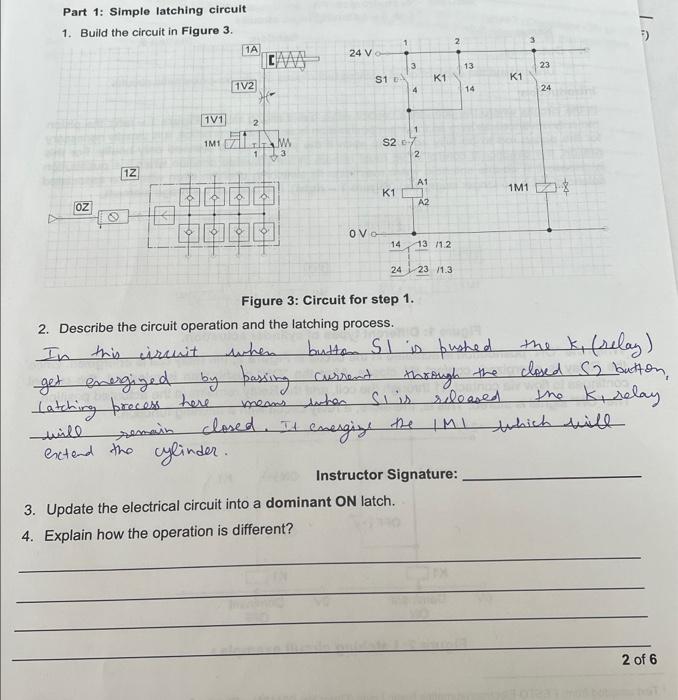 Part 1: Simple latching circuit
1. Build the circuit in Figure 3.
1A
1V2
1V1
2
1M1
1
3
1Z
0Z
1
2
3
24 V
S1
3
4
K1
13
14
K1
23
24
S2
1
2
K1
A1
A2
1M1
0 V
14 13 /1.2
24 23 /1.3
Figure 3: Circuit for step 1.
2. Describe the circuit operation and the latching process.
In this circuit when button S1 is pushed the K1 (relay)
get energized by passing current through the closed S2 button,
Latching process here means when S1 is released the K1 relay
will remain closed. It energize the 1M1 which will
extend the cylinder.
Instructor Signature:
3. Update the electrical circuit into a dominant ON latch.
4. Explain how the operation is different?
2 of 6